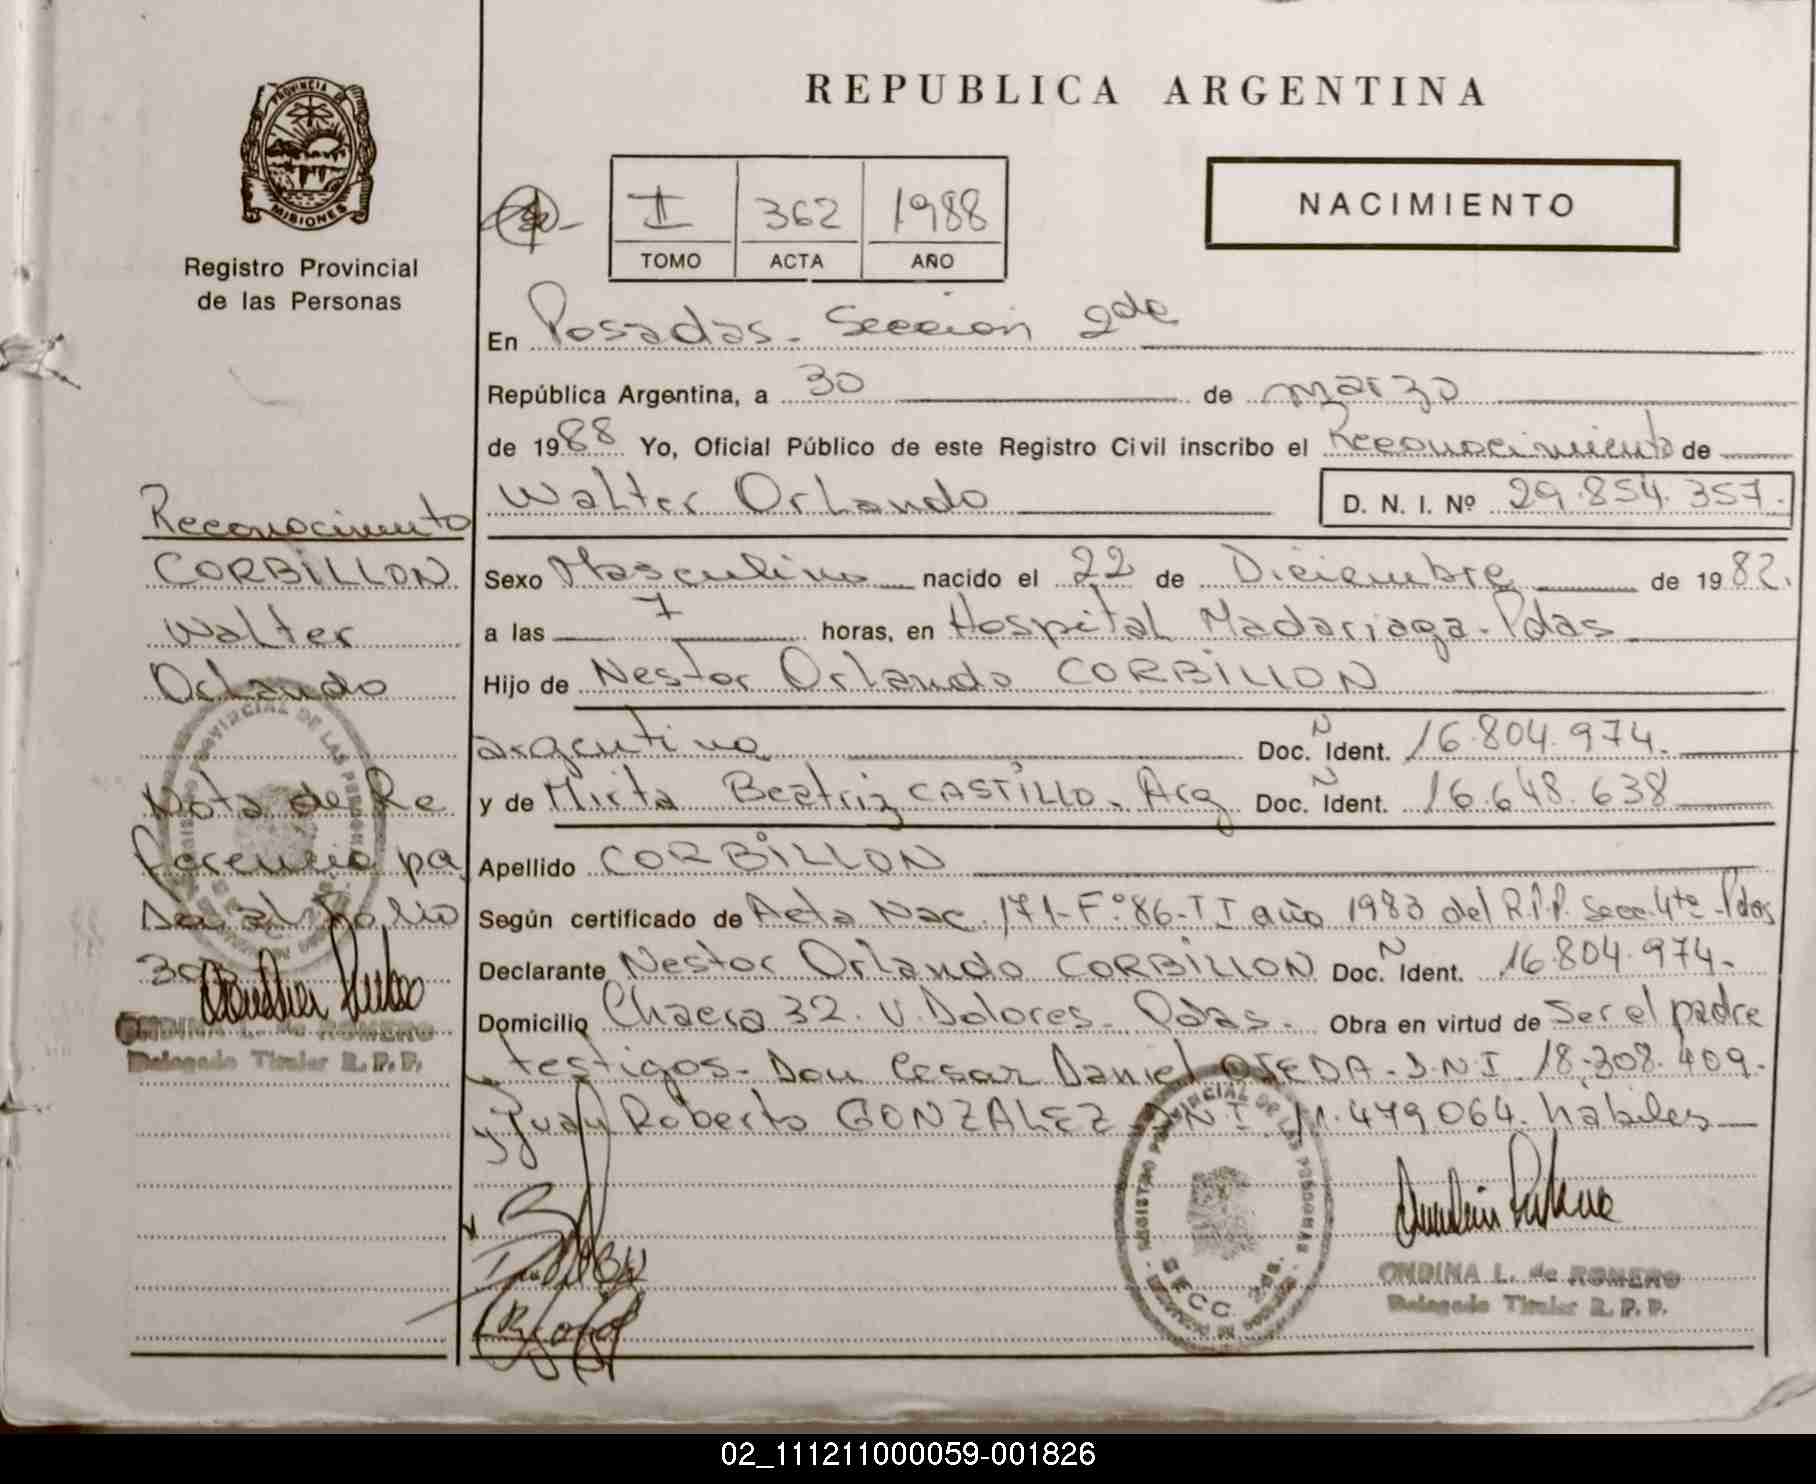 PROVINCIA DE
MISIONES
Registro Provincial
de las Personas
Reconocimiento
CORBILLON
Walter
Orlando
Nota de Re
ferencia pa
sa al folio
ONDINA L. de ROMERO
Delegado Titular R. P. P.
REPUBLICA ARGENTINA
I 362 1988
TOMO ACTA AÑO
NACIMIENTO
En Posadas - Sección 2da
República Argentina, a 30 de marzo
de 1988 Yo, Oficial Público de este Registro Civil inscribo el Reconocimiento de
Walter Orlando D. N. I. Nº 29.854.357.
Sexo Masculino nacido el 22 de Diciembre de 1982.
a las 7 horas, en Hospital Madariaga - Pdas
Hijo de Nestor Orlando CORBILLON
argentino Doc. Ñ Ident. 16.804.974.
y de Mirta Beatriz CASTILLO. Arg Doc. Ñ Ident. 16.648.638
Apellido CORBILLON
Según certificado de Acta Nac. 171-Fº.86-T I año 1983 del R.P.P. Secc. 4ta - Pdas
Declarante Nestor Orlando CORBILLON Doc. Ñ Ident. 16.804.974.
Domicilio Chacra 32. V. Dolores. Pdas. Obra en virtud de ser el padre
testigos. Don Cesar Daniel OJEDA - D.N.I 18.308.409.
y Juan Roberto GONZALEZ D.N.I. 11.479.064. habiles
REGISTRO PROVINCIAL DE LAS PERSONAS
SECC. 2da.
ONDINA L. de ROMERO
Delegado Titular R. P. P.
02_111211000059-001826